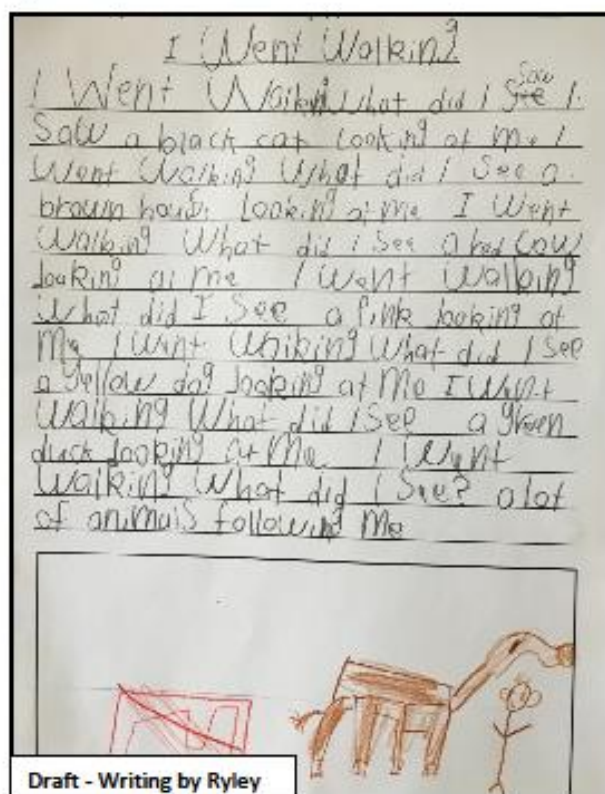 I Went Walking
I Went Walking What did I See Saw I.
Saw a black cat Looking at me I
Went Walking What did I See a.
brown Looking at me I Went
Walking What did I See a red Cow
Looking at me I Went Walking
What did I See a Pink Looking at
Me I Went Walking What did I See
a yellow dog Looking at Me I Went
Walking What did I See a green
duck Looking at Me I Went
Walking What did I See? a lot
of animals following Me
Draft - Writing by Ryley